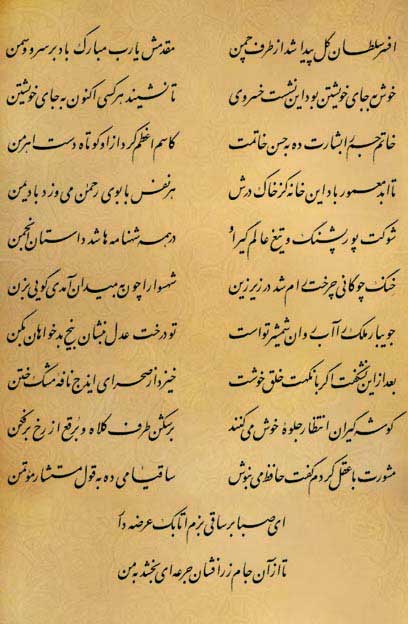 افسر سلطان گل پیدا شد از طرف چمن
مقدمش یارب مبارک باد بر سرو و سمن
خوش به جای خویشتن بود این نشست خسروی
تا نشیند هر کسی اکنون به جای خویشتن
خاتم جم را بشارت ده به حسن خاتمت
کاسم اعظم کرد از او کوتاه دست اهرمن
تا ابد معمور باد این خانه کز خاک درش
هر نفس با بوی رحمن می‌وزد باد یمن
شوکت پور پشنگ و تیغ عالم‌گیر او
در همه شهنامه‌ها شد داستان انجمن
خنگ چوگانی چرخت رام شد در زیر زین
شهسوارا چون به میدان آمدی گویی بزن
جویبار ملک را آب روان شمشیر تو است
تو درخت عدل بنشان بیخ بدخواهان بکن
بعد از این نشکفت اگر با نکهت خلق خوشت
خیزد از صحرای ایذج نافه مشک ختن
گوشه‌گیران انتظار جلوهٔ خوش می‌کنند
برشکن طرف کلاه و برقع از رخ برفکن
مشورت با عقل کردم گفت حافظ می بنوش
ساقیا می ده به قول مستشار مؤتمن
ای صبا بر ساقی بزم اتابک عرضه دار
تا از آن جام زرافشان جرعه‌ای بخشد به من